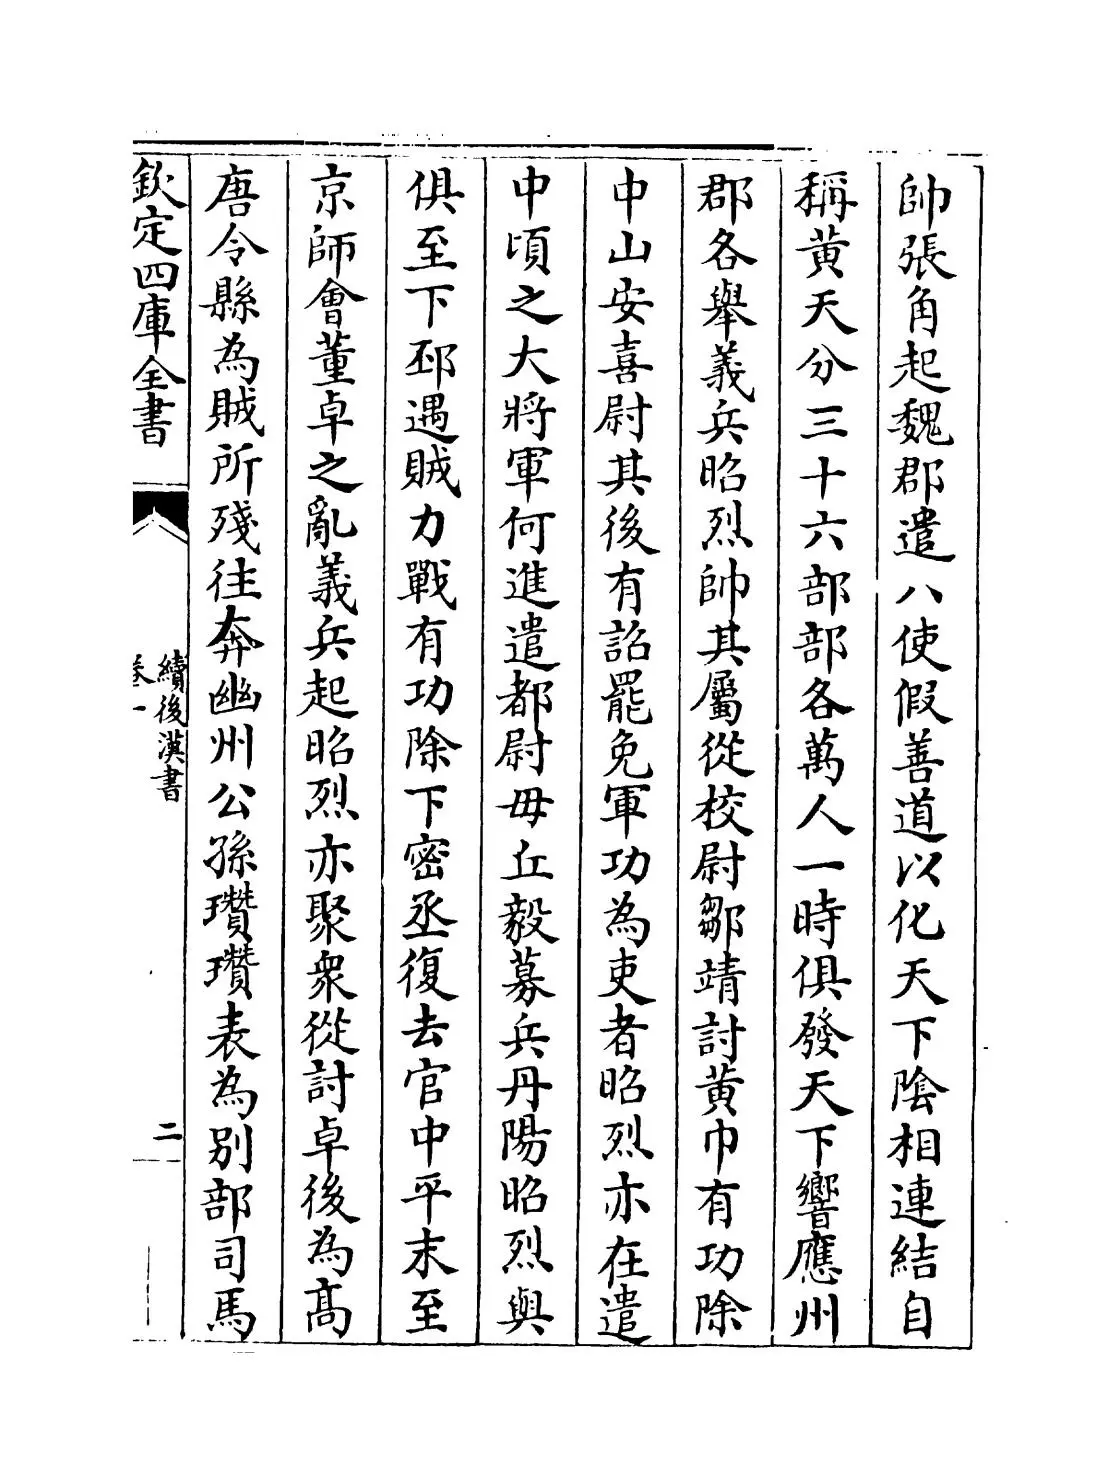 帥張角起魏郡遣八使假善道以化天下陰相連結自
稱黄天分三十六部部各萬人一時俱發天下響應州
郡各舉義兵昭烈帥其屬從校尉鄒靖討黄巾有功除
中山安喜尉其後有詔罷免軍功為吏者昭烈亦在遣
中頃之大將軍何進遣都尉毋丘毅募兵丹陽昭烈與
俱至下邳遇賊力戰有功除下密丞復去官中平末至
京師會董卓之亂義兵起昭烈亦聚衆從討卓後為髙
唐令縣為賊所殘往奔幽州公孫瓚瓚表為别部司馬
欽定四庫全書
續後漢書
卷一
二